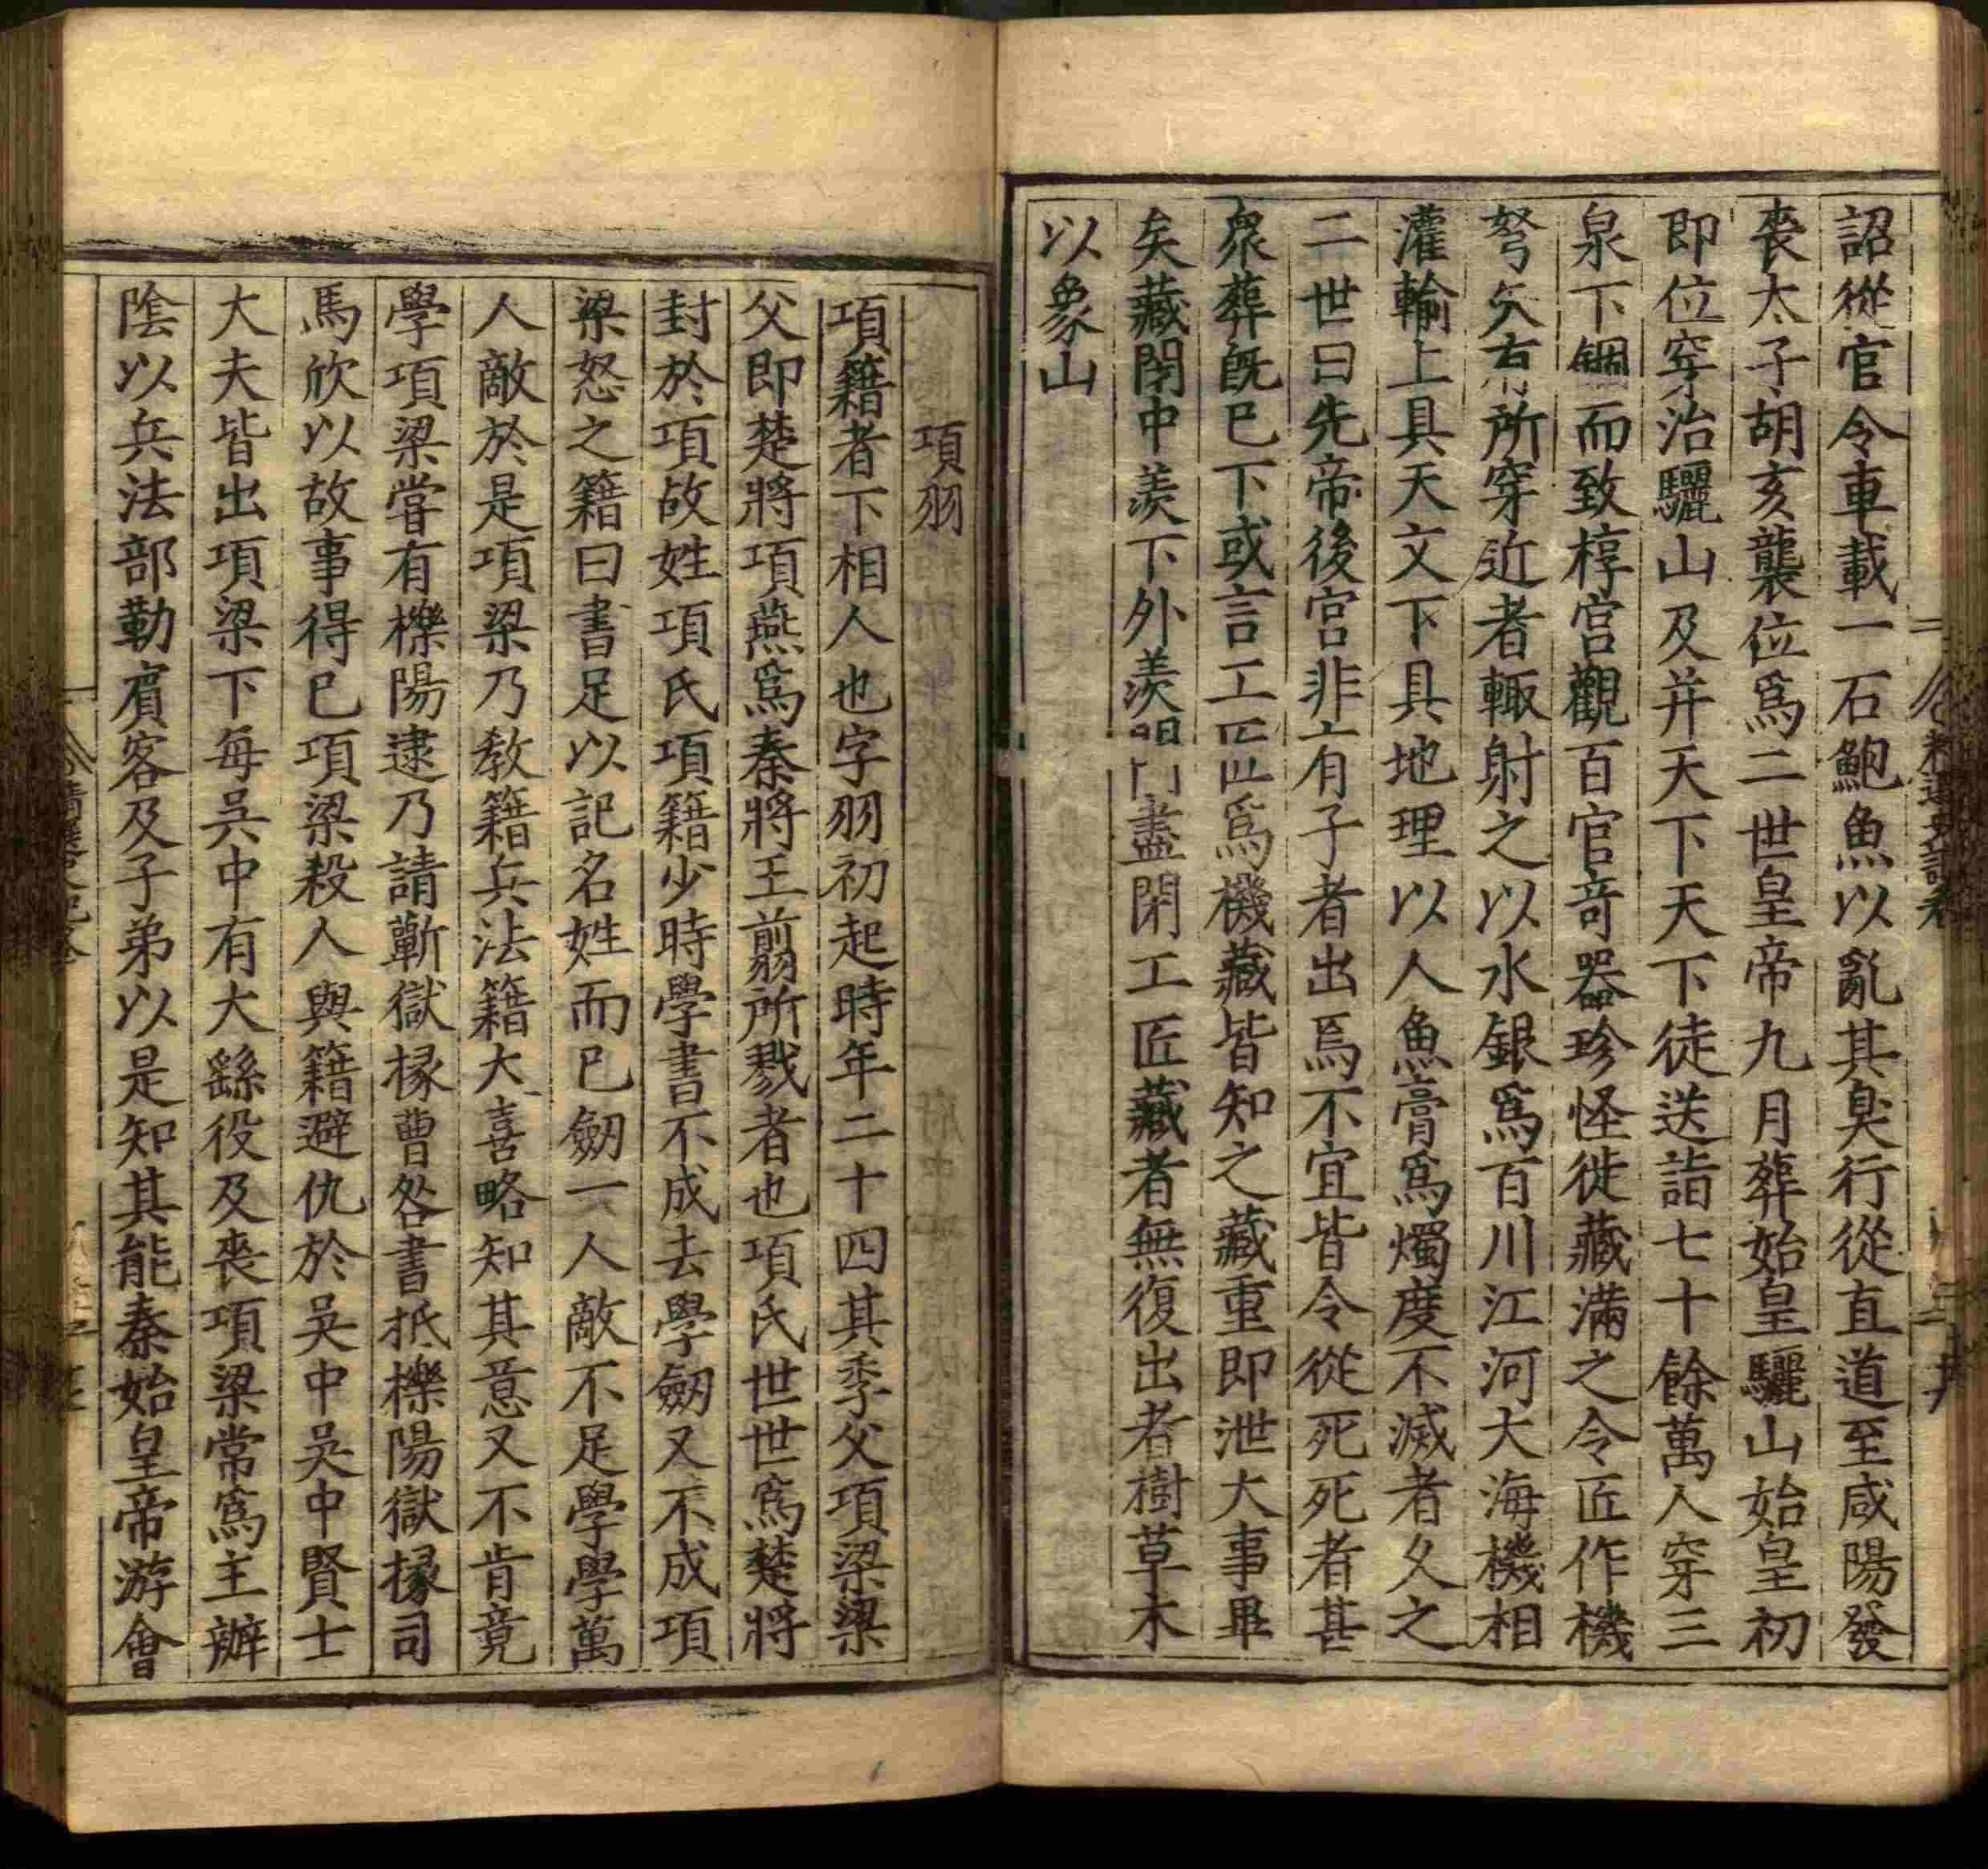 詔從官令車載一石鮑魚以亂其臭行從直道至咸陽發
喪太子胡亥襲位爲二世皇帝九月葬始皇驪山始皇初
即位穿治驪山及并天下天下徒送詣七十餘萬人穿三
泉下錮而致椁宮觀百官竒器珍怪徙藏滿之令匠作機
弩矢有所穿近者輙射之以水銀爲百川江河大海機相
灌輸上具天文下具地理以人魚膏爲燭度不滅者久之
二世曰先帝後宮非有子者出焉不宜皆令從死死者甚
衆葬旣已下或言工匠爲機藏皆知之藏重即泄大事畢
矣藏閉中羨下外羨門盡閉工匠藏者無復出者樹草木
以象山
項羽
項籍者下相人也字羽初起時年二十四其季父項梁梁
父即楚將項燕爲秦將王翦所戮者也項氏世世爲楚將
封於項故姓項氏項籍少時學書不成去學劒又不成項
梁怒之籍曰書足以記名姓而已劒一人敵不足學學萬
人敵於是項梁乃敎籍兵法籍大喜略知其意又不肯竟
學項梁嘗有櫟陽逮乃請蘄獄掾曹咎書抵櫟陽獄掾司
馬欣以故事得已項梁殺人與籍避仇於吳中吳中賢士
大夫皆出項梁下每吳中有大繇役及喪項梁常爲主辦
陰以兵法部勒賔客及子弟以是知其能秦始皇帝游會